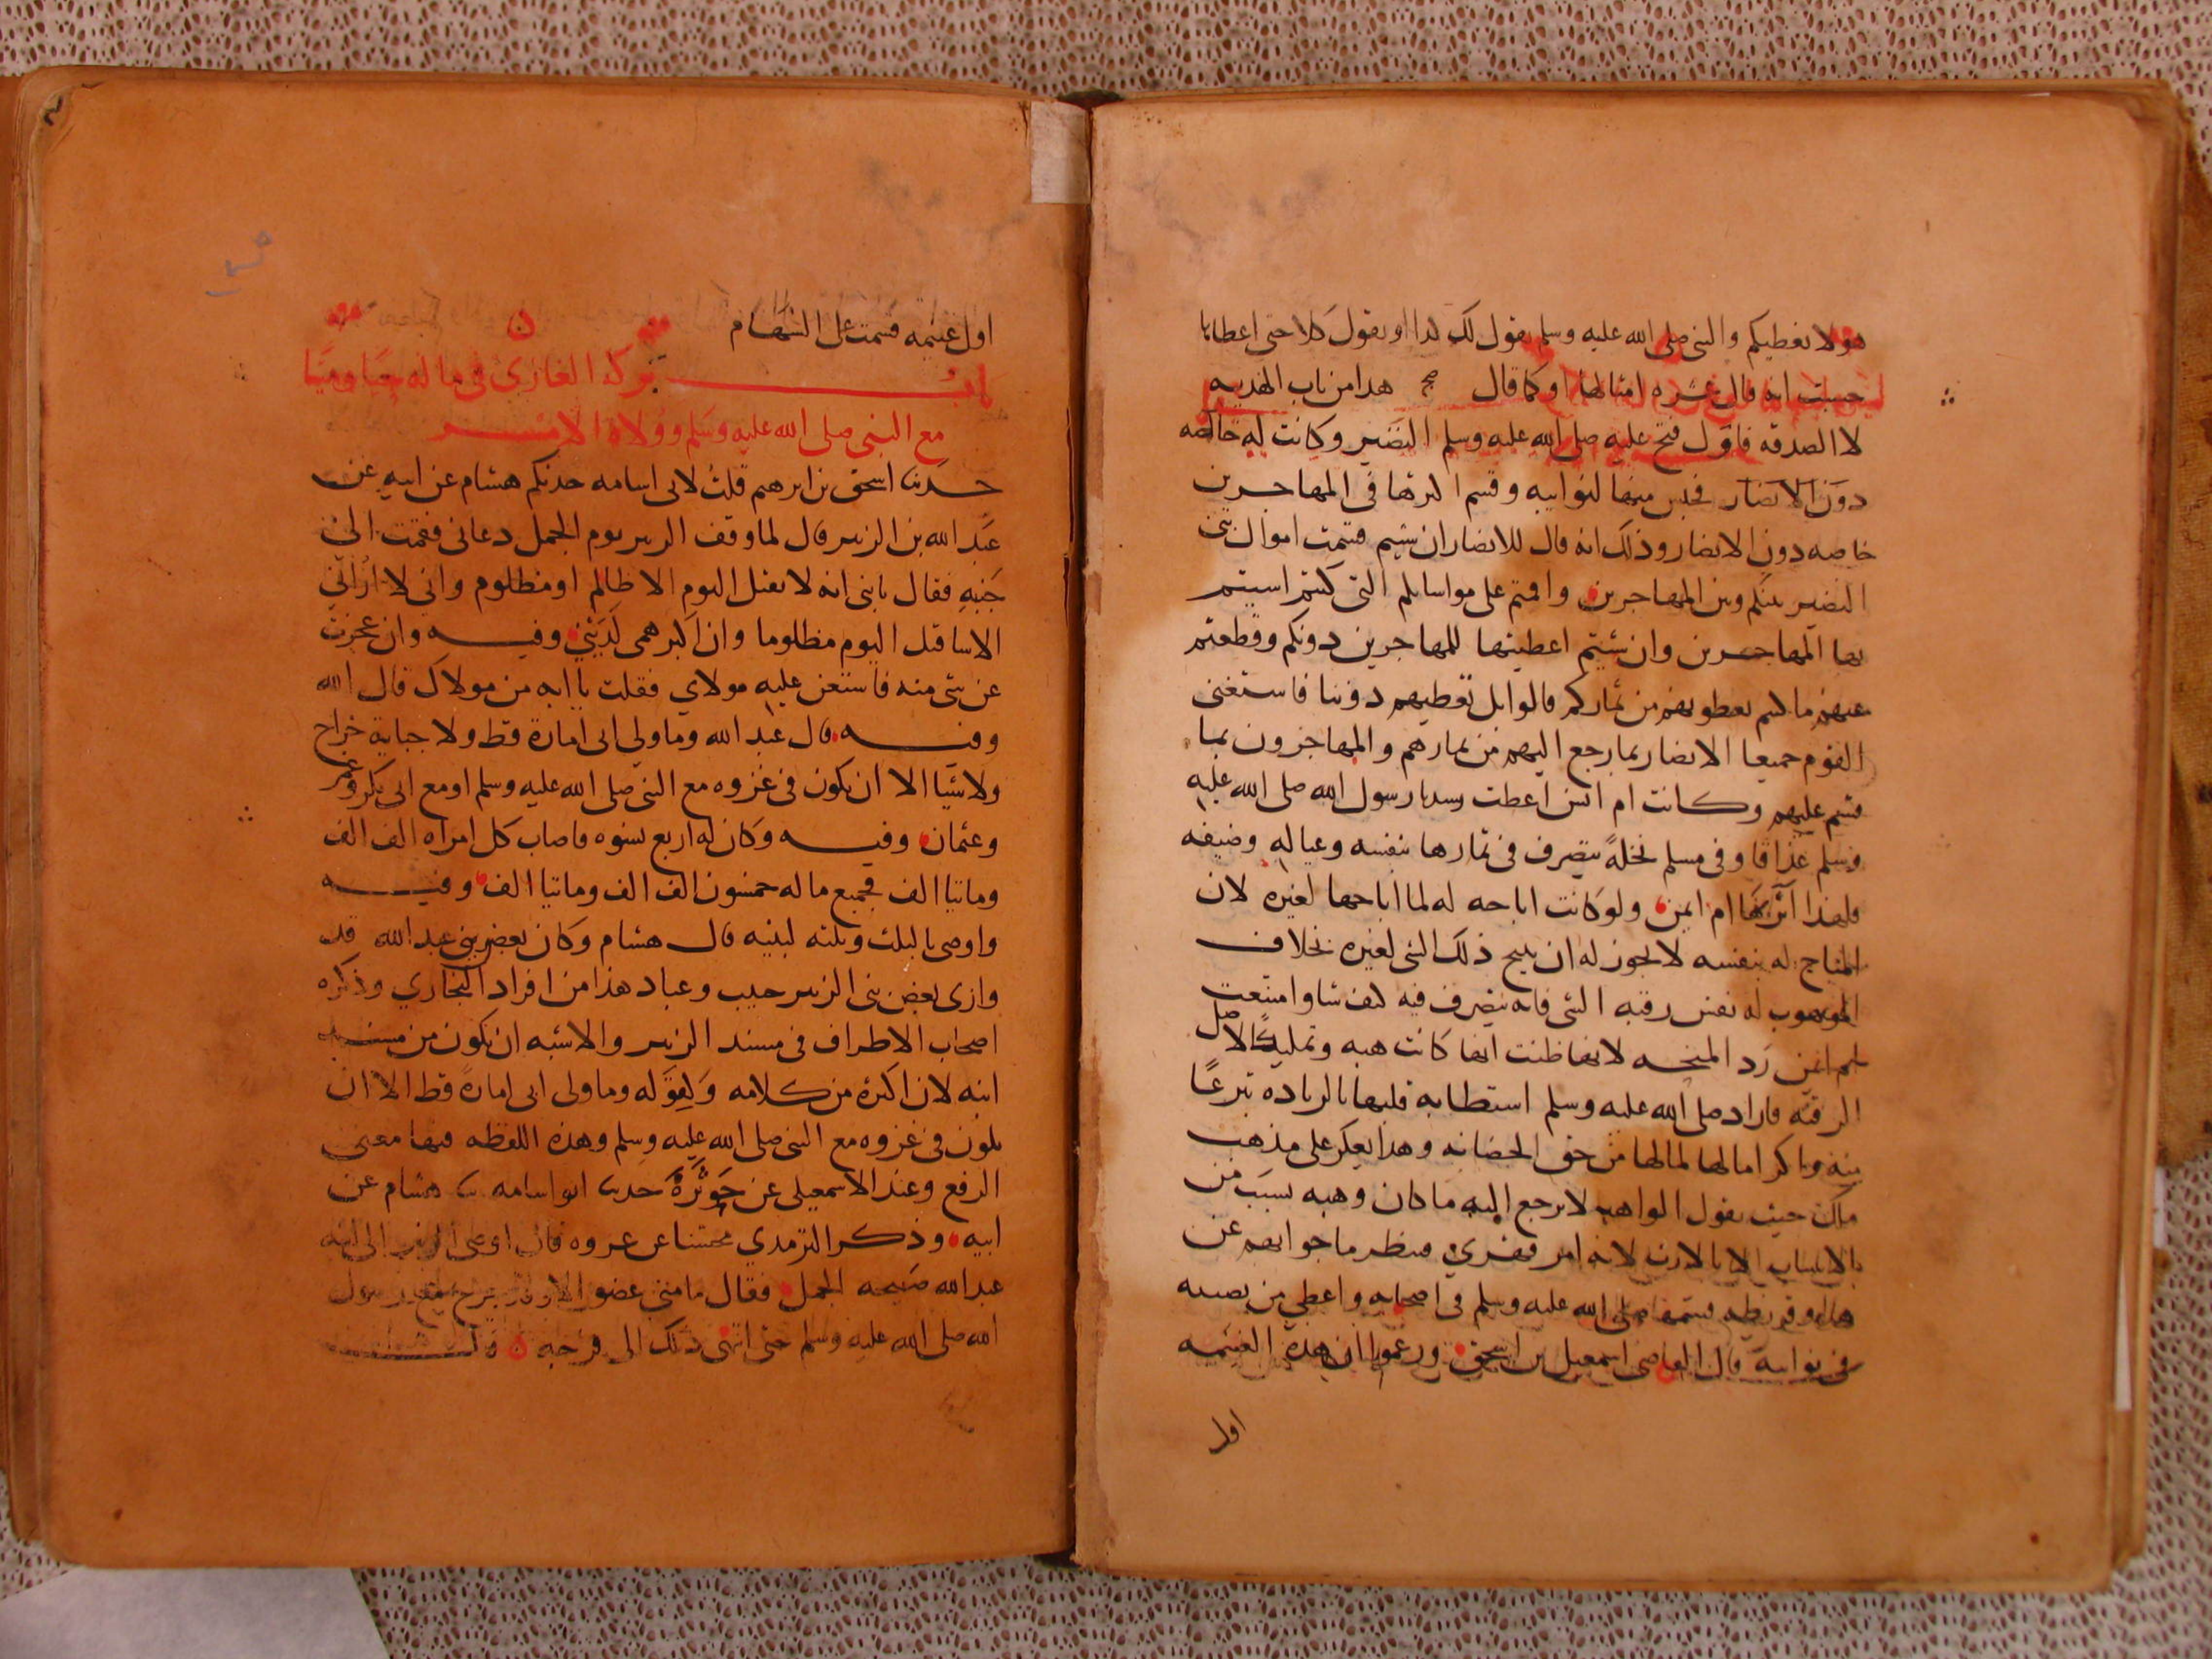 هولا يعطيكم والنبي صلى الله عليه وسلم يقول لك كذا او يقول كلا حتى اعطاها
حسبت انه قال عشره امثالها او كما قال صح هدا من باب الهديه
لا الصدقه فاول فتح عليه صلى الله عليه وسلم النضير وكانت له خالصه
دون الانصار فحبس منها لنوايبه وقسم اكثرها في المهاجرين
خاصه دون الانصار وذلك انه قال للانصار ان شيتم قسمت اموال بني
النضير بينكم وبين المهاجرين واقمتم على مواساتكم التي كنتم اسيتم
بها المهاجرين وان شيتم اعطيتها للمهاجرين دونكم وقطعتم
عنهم ما كنتم تعطونهم من ثماركم قالوا بل تعطيهم دوننا فاستغنى
القوم جميعا الانصار بما رجع اليهم من ثمارهم والمهاجرون بما
قسم عليهم وكانت ام انس اعطت رسول الله صلى الله عليه
وسلم عذاقا وفي مسلم نخلة يتصرف في ثمارها بنفسه وعياله وضيفه
فلهذا آثر بها ام ايمن ولو كانت اباحه له لما اباحها لغيره لان
المباح له بنفسه لا يجوز له ان يبيح ذلك الشي لغيره بخلاف
الموهوب له نفس رقبه الشي فانه يتصرف فيه كيف شا وامتنعت
ام ايمن رد المنحه لانها ظنت انها كانت هبه وتمليكا لاصل
الرقبه فاراد صلى الله عليه وسلم استطابه قلبها بالزياده تبرعا
منه واكراما لها لما لها من حق الحضانه وهذا يعكر على مذهب
ملك حيث يقول الواهب لا يرجع اليه ما كان وهبه بسبب من
الاسباب الا بالارث لانه امر قهري فينظر ما جوابهم عن
هذا وقريظه قسمها صلى الله عليه وسلم في اصحابه واعطى من نصيبه
في نوايبه قال القاضي اسمعيل بن اسحق وزعموا ان هذه الغنيمه
اول
اول غنيمه قسمت على السهام
باب بركة الغازي في ماله حيا وميتا
مع النبي صلى الله عليه وسلم وولاة الامر
حدثنا اسحق بن ابرهيم قلت لابي اسامه حدثكم هشام عن ابيه عن
عبد الله بن الزبير قال لما وقف الزبير يوم الجمل دعاني فقمت الى
جنبه فقال يا بني انه لا يقتل اليوم الا ظالم او مظلوم واني لا اراني
الا ساقتل اليوم مظلوما وان اكبر همي لديني وفيه وان عجزت
عن شي منه فاستعن عليه مولاي فقلت يا ابه من مولاك قال الله
وفيه قال عبد الله وما ولي ابي امارة قط ولا جباية خراج
ولا شيا الا ان يكون في غزوه مع النبي صلى الله عليه وسلم او مع ابي بكر وعمر
وعثمان وفيه وكان له اربع نسوه فاصاب كل امراه الف الف
وماتيا الف فجميع ماله خمسون الف الف وماتيا الف وفيه
واوصى بالثلث وثلثه لبنيه قال هشام وكان بعض بني عبد الله قد
وازى بعض بني الزبير حبيب وعباد هذا من افراد البخاري وذكره
اصحاب الاطراف في مسند الزبير والاشبه ان يكون من مسند
ابنه لان اكثره من كلامه ولقوله وما ولى ابى امارة قط الا ان
يكون في غزوه مع النبي صلى الله عليه وسلم وهذه اللفظه فيها معنى
الرفع وعند الاسمعيلي عن جوثرة حدثنا ابو اسامه ثنا هشام عن
ابيه وذكر الترمذي محسنا عن عروه قال اوصى الزبير الى ابنه
عبد الله صبيحه الجمل فقال ما مني عضو الا وقد جرح مع رسول
الله صلى الله عليه وسلم حتى انتهى ذلك الى فرجه